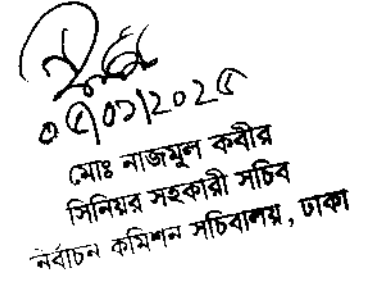 ০৫/০১/২০২৫
মোঃ নাজমুল কবীর
সিনিয়র সহকারী সচিব
নির্বাচন কমিশন সচিবালয়, ঢাকা